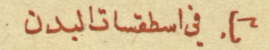 ٢. في اسطقسات البدن